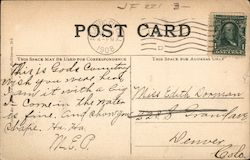 JF 221 3-
POST CARD
1908
THIS SPACE MAY BE USED FOR CORRESPONDENCE
THIS SPACE FOR ADDRESS ONLY
This is Gods Country
wish you were here
I am it with a big
I. Come in the water
is fine.
shape. Ha. Ha.
N.E.P.
Miss Edith Dorman
Denver
Colo.